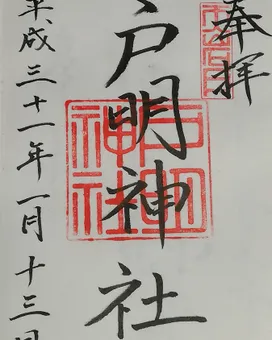 奉拝
戸明神社
戸明神社
平成三十一年一月十三日